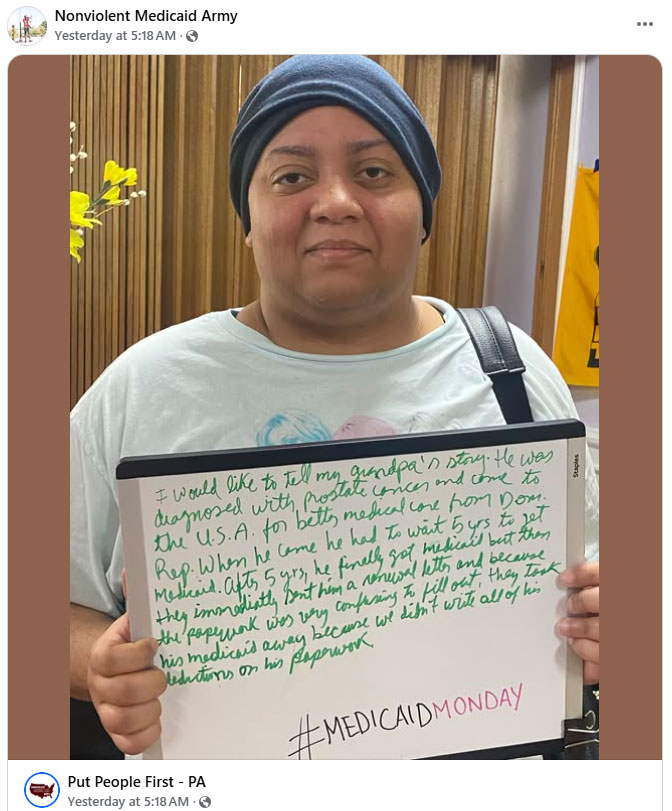 Nonviolent Medicaid Army
Yesterday at 5:18 AM ·
Staples
I would like to tell my grandpa's story. He was
diagnosed with prostate cancer and come to
the U.S.A. for better medical care from Dom.
Rep. When he came he had to wait 5 yrs to get
Medicaid. After 5 yrs, he finally got medicaid but then
they immediatly sent him a renewal letter and because
the paperwork was very confusing to fill out, they took
his medicaid away because we didn't write all of his
deductions on his paperwork
#MEDICAIDMONDAY
Put People First - PA
Yesterday at 5:18 AM ·